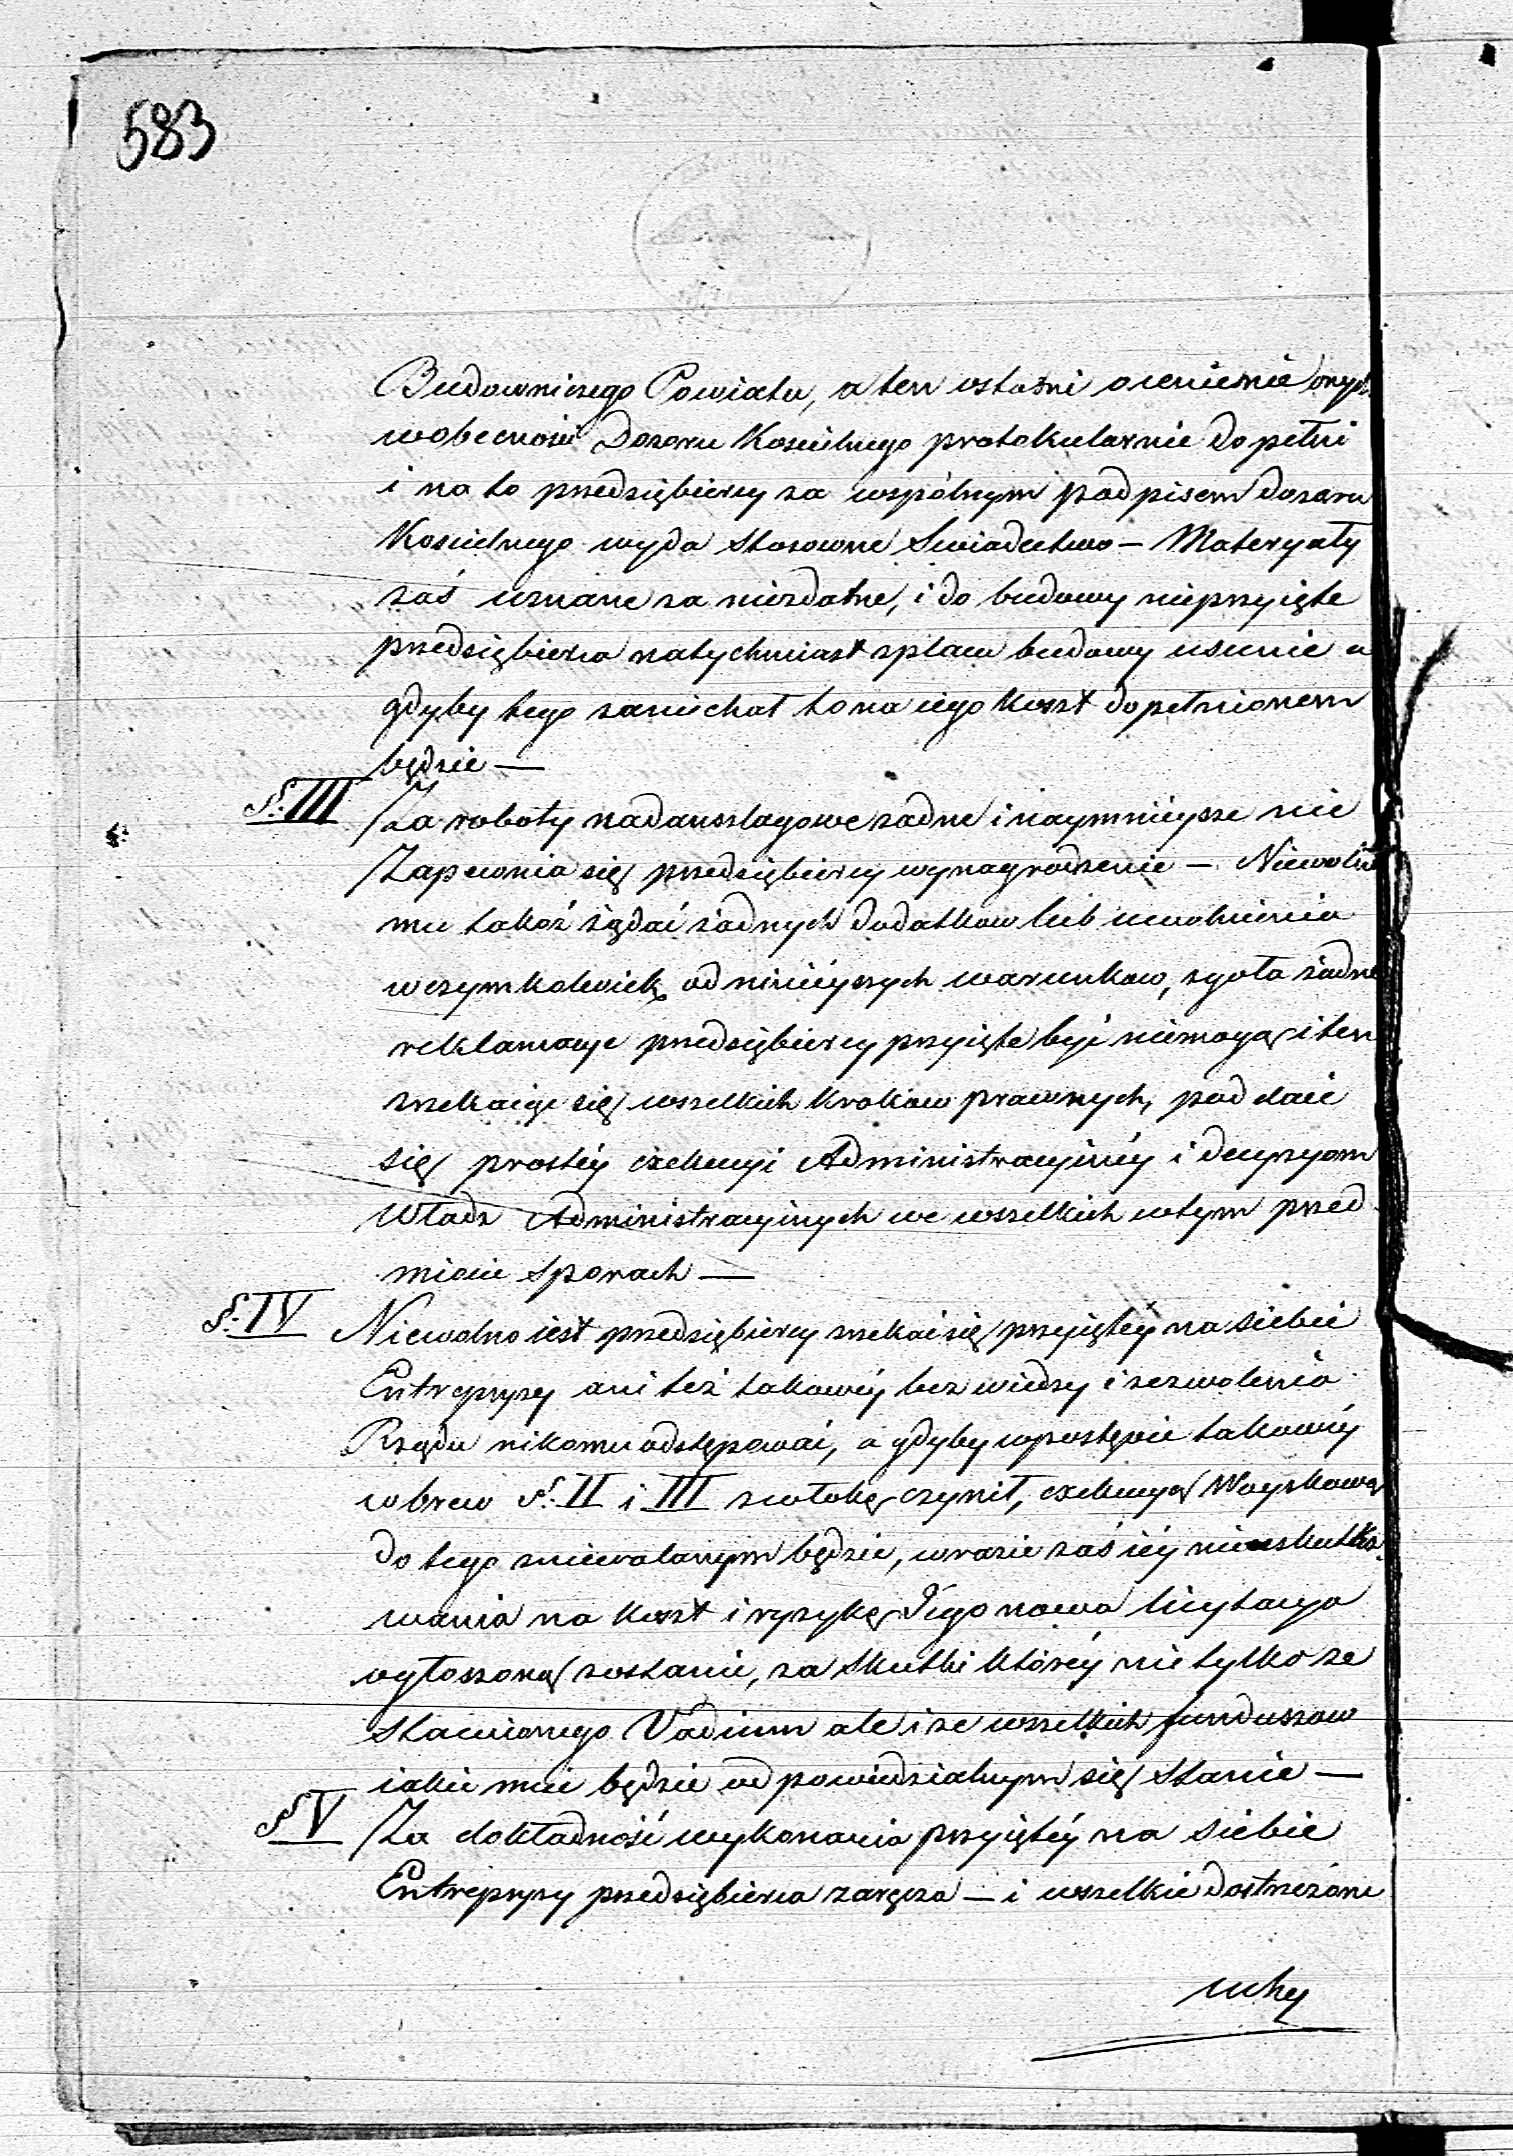 583
Budowniczego Powiatu, a ten ostatni ocenienie onych
wobecności Dozoru Kościelnego protokularnie dopełni
i na to przedsiębiercy za wspólnym podpisem dozoru
Kościelnego wyda stosowne Swiadectwo — Materyały
zaś uznane za niezdatne, i do budowy nieprzyięte
przedsiębierca natychmiast zplacu budowy usunie a
gdyby tego zaniechał to na iego koszt dopełnionem
będzie —
§. III Za roboty nadanszlagowe żadne i naymnieysze nie
Zapewnia się przedsiębiercy wynagrodzenie — Niewolno
mu także żądać żadnych dodatkow lub uwolnienia
wczymkolwiek od ninieyszych warunkow, zgoła żadne
reklamacye przedsiębiercy przyięte być niemogą i ten
zrzekaiąc się wszelkich krokow prawnych, poddaie
się prostéy exekucyi Administracyinéy i decyzyom
Władz Administracyinych we wszelkich wtym przed
miocie sporach —
§. IV Niewolno iest przedsiębiercy zrzekać się przyiętéy na siebie
Entrepryzy ani też takowéy bez wiedzy i zezwolenia
Rządu nikomu odstępować, a gdyby wpostępie takowéy
wbrew §. II i III zwłokę czynił, exekucyą Woyskową
do tego zniewolonym będzie, wrazie zaś iéy nieskutko-
wania na koszt i ryzykę Jego nowa licytacya
ogłoszoną zostanie, za skutki któréy nie tylko ze
stawionego Vadium ale i ze wszelkich funduszow
iakie mieć będzie odpowiedzialnym się stanie —
§ V Za dokładność wykonania przyiętéy na siebie
Entrepryzy przedsiębierca zaręcza — i wszelkie dostrzeżone
uchy